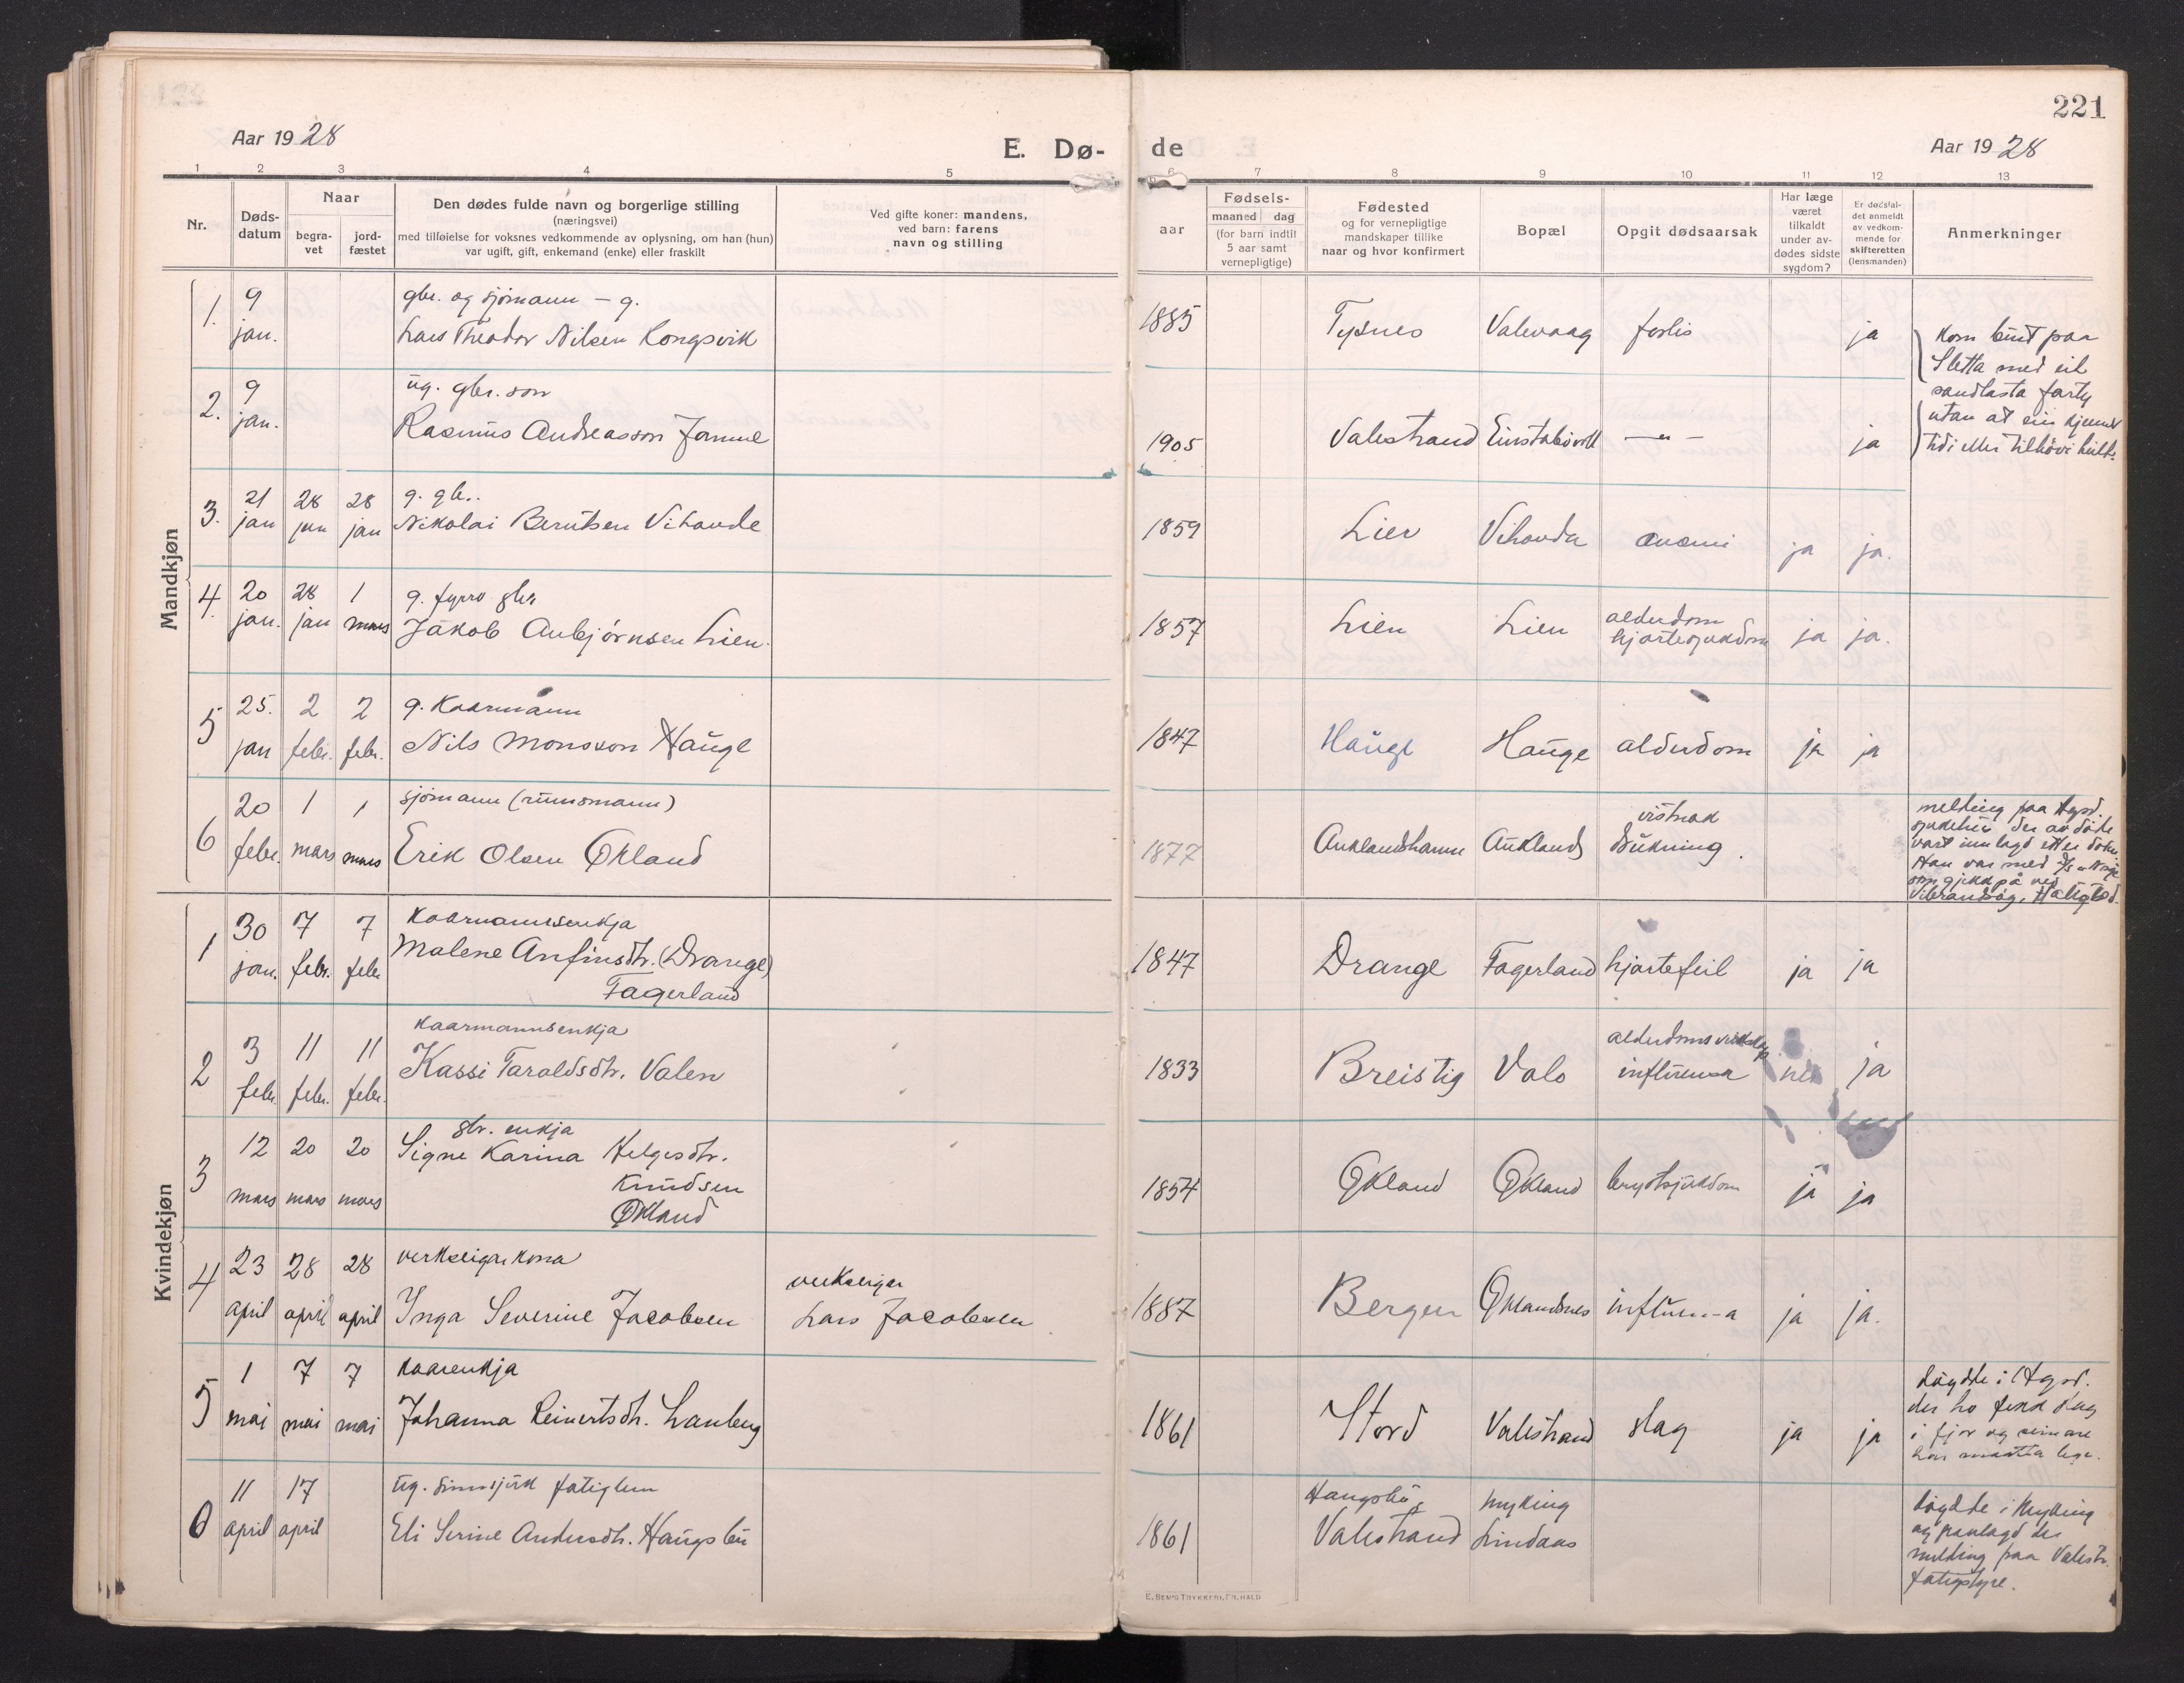 221
Aar 1928
E. Dø-
de
Aar 1928
1 2 3 4 5 6 7 8 9 10 11 12 13
Nr.
Døds-
datum
Naar
begra-
vet
jord-
fæstet
Den dødes fulde navn og borgerlige stilling
(næringsvei)
med tilføielse for voksnes vedkommende av oplysning, om han (hun)
var ugift, gift, enkemand (enke) eller fraskilt
Ved gifte koner: mandens,
ved barn: farens
navn og stilling
aar
Fødsels-
maaned dag
(for barn indtil
5 aar samt
vernepligtige)
Fødested
og for vernepligtige
mandskaper tillike
naar og hvor konfirmert
Bopæl
Opgit dødsaarsak
Har læge
været
tilkaldt
under av-
dødes sidste
sygdom?
Er dødsfal-
det anmeldt
av vedkom-
mende for
skifteretten
(lensmanden)
Anmerkninger
Mandkjøn
gbr. og sjømann - g.
1. 9 jan. Lars Theodor Nilsen Kongsvik 1885 Tysnes Valevaag forlis ja
Kom burt paa
Sletta med eit
sandlasta farty
utan at ein kjenner
tid i eller tilhøvi
ug. gbr. son
2. 9 jan. Rasmus Andreasson 1905 Valestrand Einstabøvoll — " — ja
g. gbr.
3. 21 jan 28 jan 28 jan Nikolai Berntsen Vihovde 1859 Lier Vihovda anæmi ja ja.
g. fyrrv. gbr
4. 20 jan. 28 jan 1 mars Jakob Anbjørnsen Lien. 1857 Lien Lien alderdom
hjartesjukdom ja ja.
g. Kaarmann
5 25. jan 2 febr. 2 febr. Nils Monsson Hauge 1847 Hauge Hauge alderdom ja ja
sjømann (runsmann)
6 20 febr. 1 mars 1 mars Erik Olsen Økland 1877 Auklandshamn Aukland vistnok
drukning.
melding paa
sjukehus der av døde
vart innlagd etter
Han var med
som gjekk på ved
Kvindekjøn
Kaarmannsenkja
1 30 jan. 7 febr. 7 febr Malene Anfinsdtr. (Drange)
Fagerland 1847 Drange Fagerland hjartefeil ja ja
Kaarmannsenkja
2 3 febr. 11 febr. 11 febr. Kassi Taraldsdtr. Valen 1833 Breistig Valo
influensa nei ja
gbr. enkja
3 12 mars 20 mars 20 mars Signe Karina Helgesdtr.
Knudsen
Økland 1854 Økland Økland brystsjukdom ja ja
verkseigarkona
4 23 april 28 april 28 april Inga Severine Jacobsen
verkseigar
Lars Jacobsen 1887 Bergen Øklandsnes influensa ja ja.
Kaarenkja
5 1 mai 7 mai 7 mai Johanna Reinertsdtr. Lanberg 1861 Stord Valestrand slag ja ja
døydde i
der ho fekk slag
i fjor og seinare
har
ug. sinnsjuk fatiglem
6 11 april 17 april Eli Serine Andersdtr. Haugsbu 1861 Haugsbu
Valestrand Myking
Lindaas
døydde i Myking
og gravlagd der
melding paa Valestr.
fatigstyre.
E. SEM'S TRYKKERI, FR.HALD